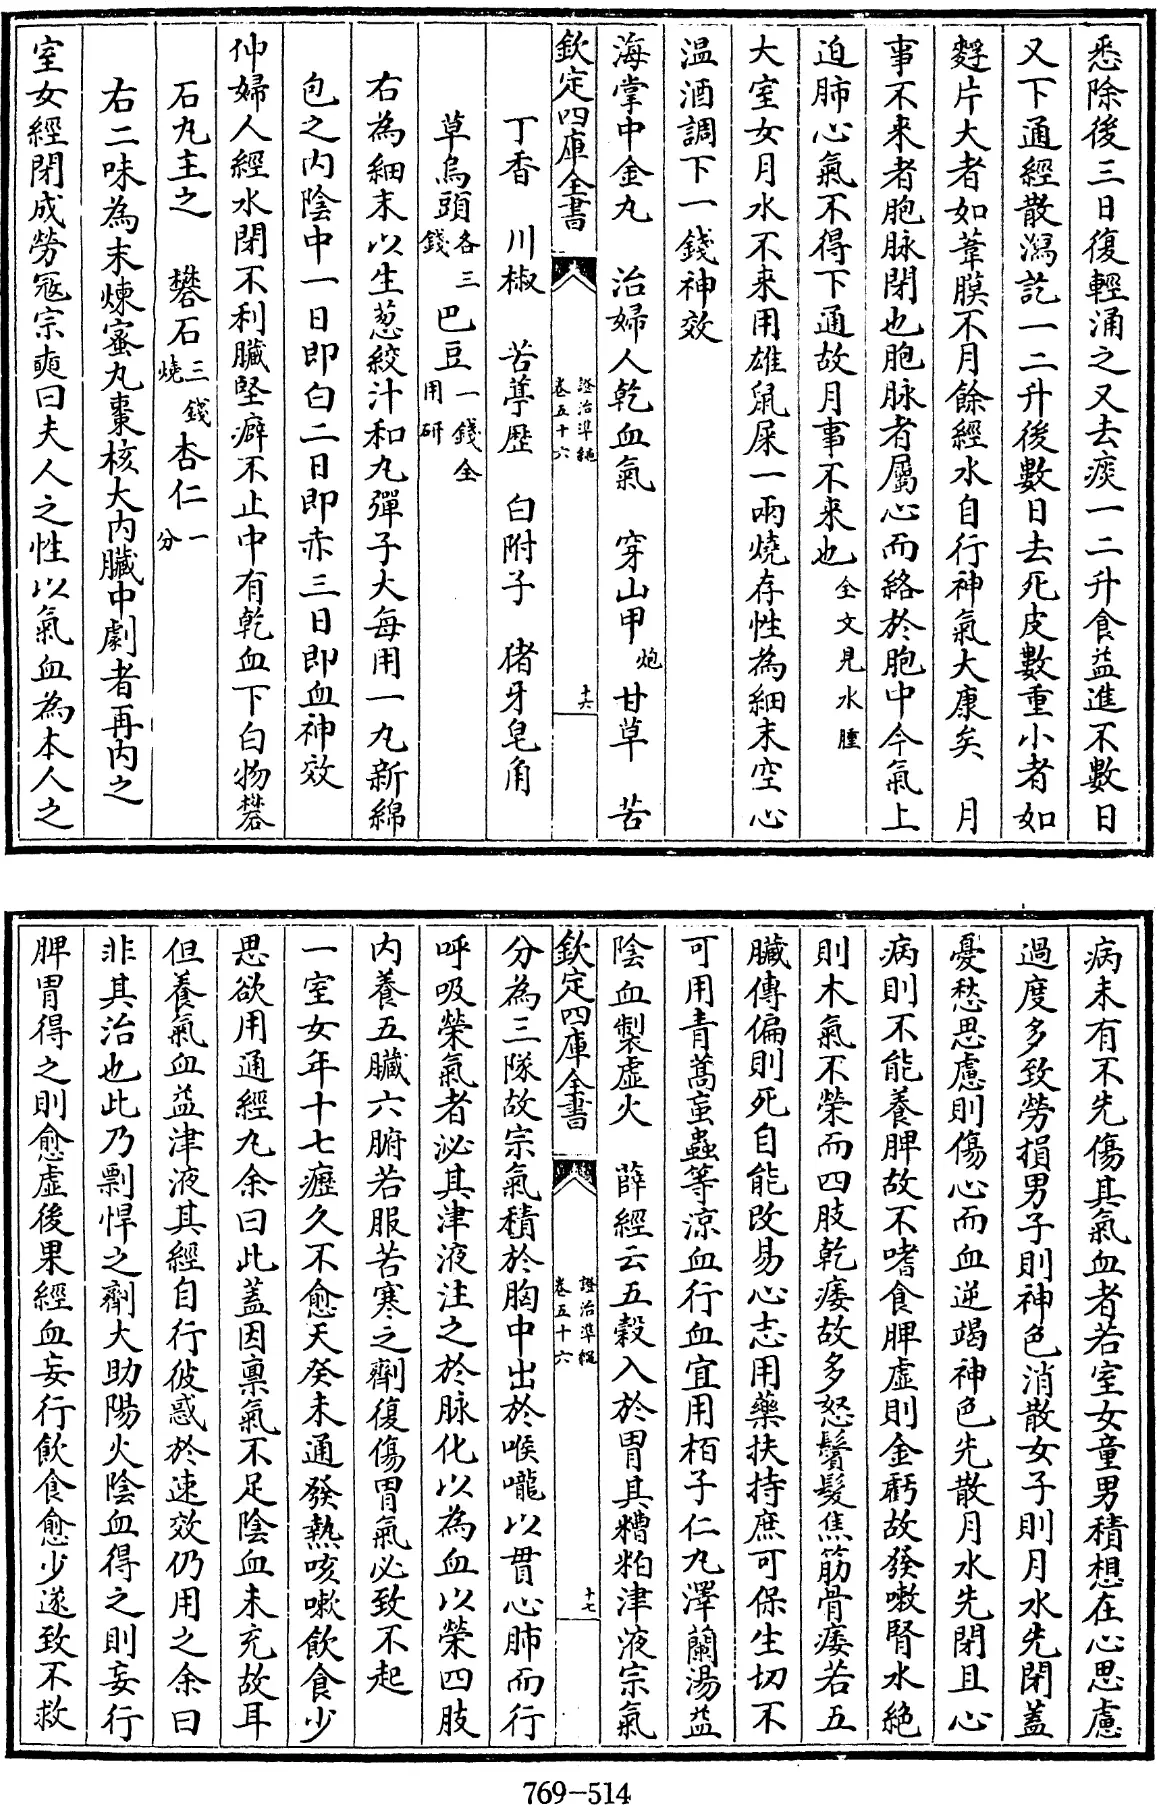 悉除後三日復輕涌之又去痰一二升食益進不數日
又下通經散瀉訖一二升後數日去死皮數重小者如
麩片大者如葦膜不月餘經水自行神氣大康矣　月
事不来者胞脉閉也胞脉者屬心而絡於胞中今氣上
迫肺心氣不得下通故月事不来也全文見水腫
大室女月水不来用雄鼠屎一兩燒存性為細末空心
温酒調下一錢神效
海掌中金丸　治婦人乾血氣　穿山甲炮　甘草　苦
欽定四庫全書　證治準繩卷五十六　十六
丁香　川椒　苦葶歷　白附子　猪牙皂角
草烏頭各三錢　巴豆一錢全用研
右為細末以生葱絞汁和丸彈子大每用一丸新綿
包之内陰中一日即白二日即赤三日即血神效
仲婦人經水閉不利臟堅癖不止中有乾血下白物礬
石丸主之　礬石三錢燒　杏仁一分
右二味為末煉蜜丸棗核大内臟中劇者再内之
室女經閉成勞寇宗奭曰夫人之性以氣血為本人之
病未有不先傷其氣血者若室女童男積想在心思慮
過度多致勞損男子則神色消散女子則月水先閉蓋
憂愁思慮則傷心而血逆竭神色先散月水先閉且心
病則不能養脾故不嗜食脾虛則金虧故發嗽腎水絶
則木氣不榮而四肢乾痿故多怒鬢髮焦筋骨痿若五
臟傳偏則死自能改易心志用藥扶持庶可保生切不
可用青蒿䖟蟲等涼血行血宜用栢子仁丸澤蘭湯益
陰血製虛火　薛經云五穀入於胃其糟粕津液宗氣
欽定四庫全書　證治準繩卷五十六　十七
分為三隊故宗氣積於胸中出於喉嚨以貫心肺而行
呼吸榮氣者泌其津液注之於脉化以為血以榮四肢
内養五臟六腑若服苦寒之劑復傷胃氣必致不起
一室女年十七瘧久不愈天癸未通發熱咳嗽飲食少
思欲用通經丸余曰此蓋因禀氣不足陰血未充故耳
但養氣血益津液其經自行彼惑於速效仍用之余曰
非其治也此乃剽悍之劑大助陽火陰血得之則妄行
脾胃得之則愈虛後果經血妄行飲食愈少遂致不救
769-514